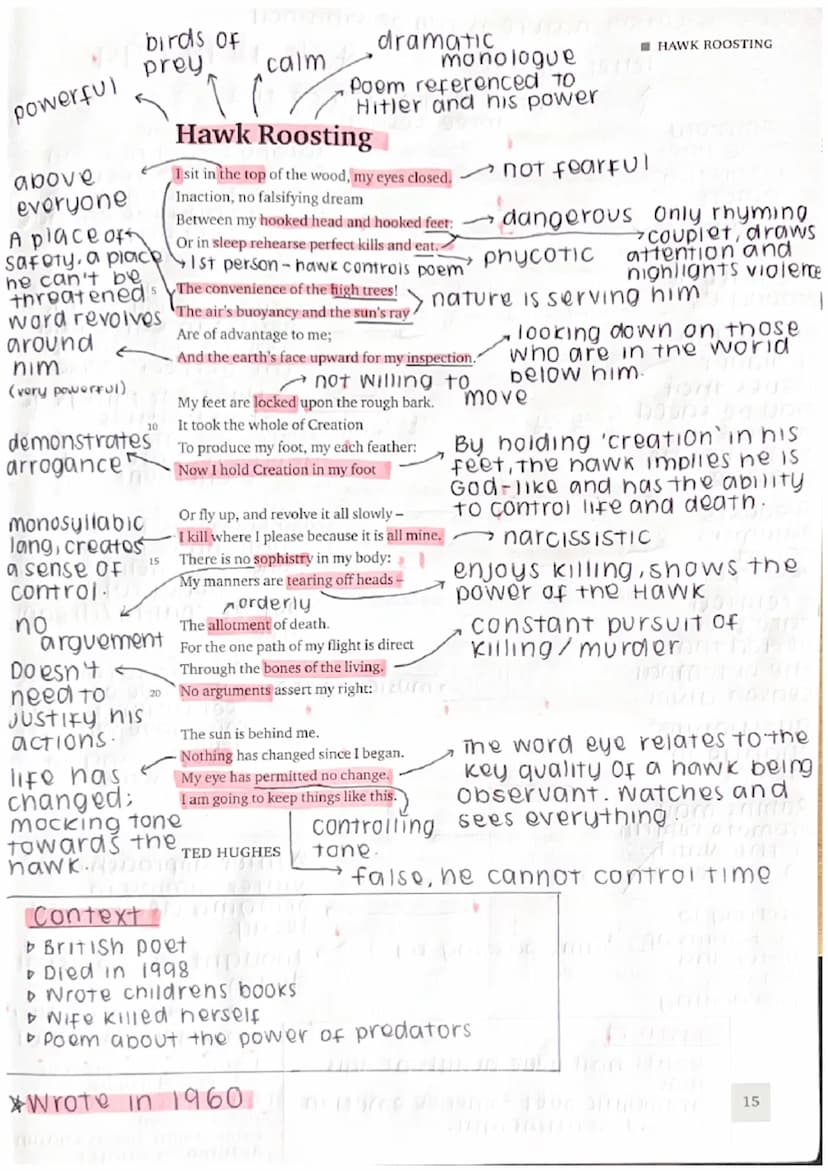 birds of
prey
calm
dramatic
monologue
■ HAWK ROOSTING
powerful
Poem referenced to
Hitler and his power
Hawk Roosting
I sit in the top of the wood, my eyes closed.
Inaction, no falsifying dream
Between my hooked head and hooked feet:
Or in sleep rehearse perfect kills and eat.
1st person - hawk controls poem
5
The convenience of the high trees!
The air's buoyancy and the sun's ray
Are of advantage to me;
And the earth's face upward for my inspection.
not willing to
move
My feet are locked upon the rough bark.
10
It took the whole of Creation
To produce my foot, my each feather:
Now I hold Creation in my foot
Or fly up, and revolve it all slowly –
I kill where I please because it is all mine.
15
There is no sophistry in my body:
My manners are tearing off heads –
orderly
The allotment of death.
For the one path of my flight is direct
Through the bones of the living.
20
No arguments assert my right:
The sun is behind me.
Nothing has changed since I began.
My eye has permitted no change.
I am going to keep things like this.
TED HUGHES
above
everyone
A place of
safety, a place
he can't be
threatened
word revolves
around
him
(very powerful)
demonstrates
arrogance
monosyllabic
lang, creates
a sense of
control.
no
arguement
Doesn't
need to
justify his
actions.
life has
changed;
mocking tone
towards the
hawk.
not fearful
dangerous
only rhyming
couplet, draws
attention and
highlights violence
phycotic
nature is serving him
looking down on those
who are in the world
below him.
By holding 'creation' in his
feet, the hawk implies he is
God-like and has the ability
to control life and death.
narcissistic
enjoys killing, shows the
power of the Hawk
constant pursuit of
killing/murder
The word eye relates to the
key quality of a hawk being
observant. Watches and
sees everything.
controlling
tone.
false, he cannot control time
Context
▹ British poet
▹ Died in 1998
▹ Wrote childrens books
▹ Wife killed herself
▹ Poem about the power of predators
*Wrote in 1960
15